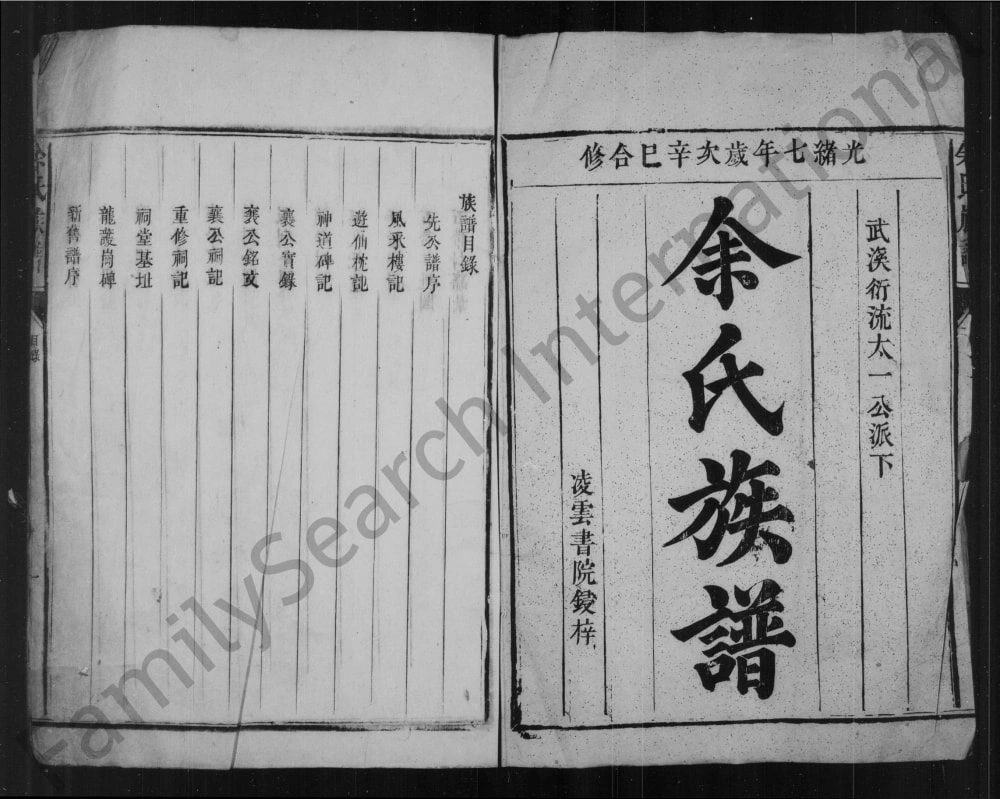 光緒七年歲次辛巳合修
武溪衍流太一公派下
余氏族譜
凌雲書院鋟梓
族譜目錄
先公譜序
風采樓記
遊仙枕記
神道碑記
襄公實錄
襄公銘文
襄公祠記
重修祠記
祠堂基址
龍叢崗碑
新舊譜序
目錄
FamilySearch International